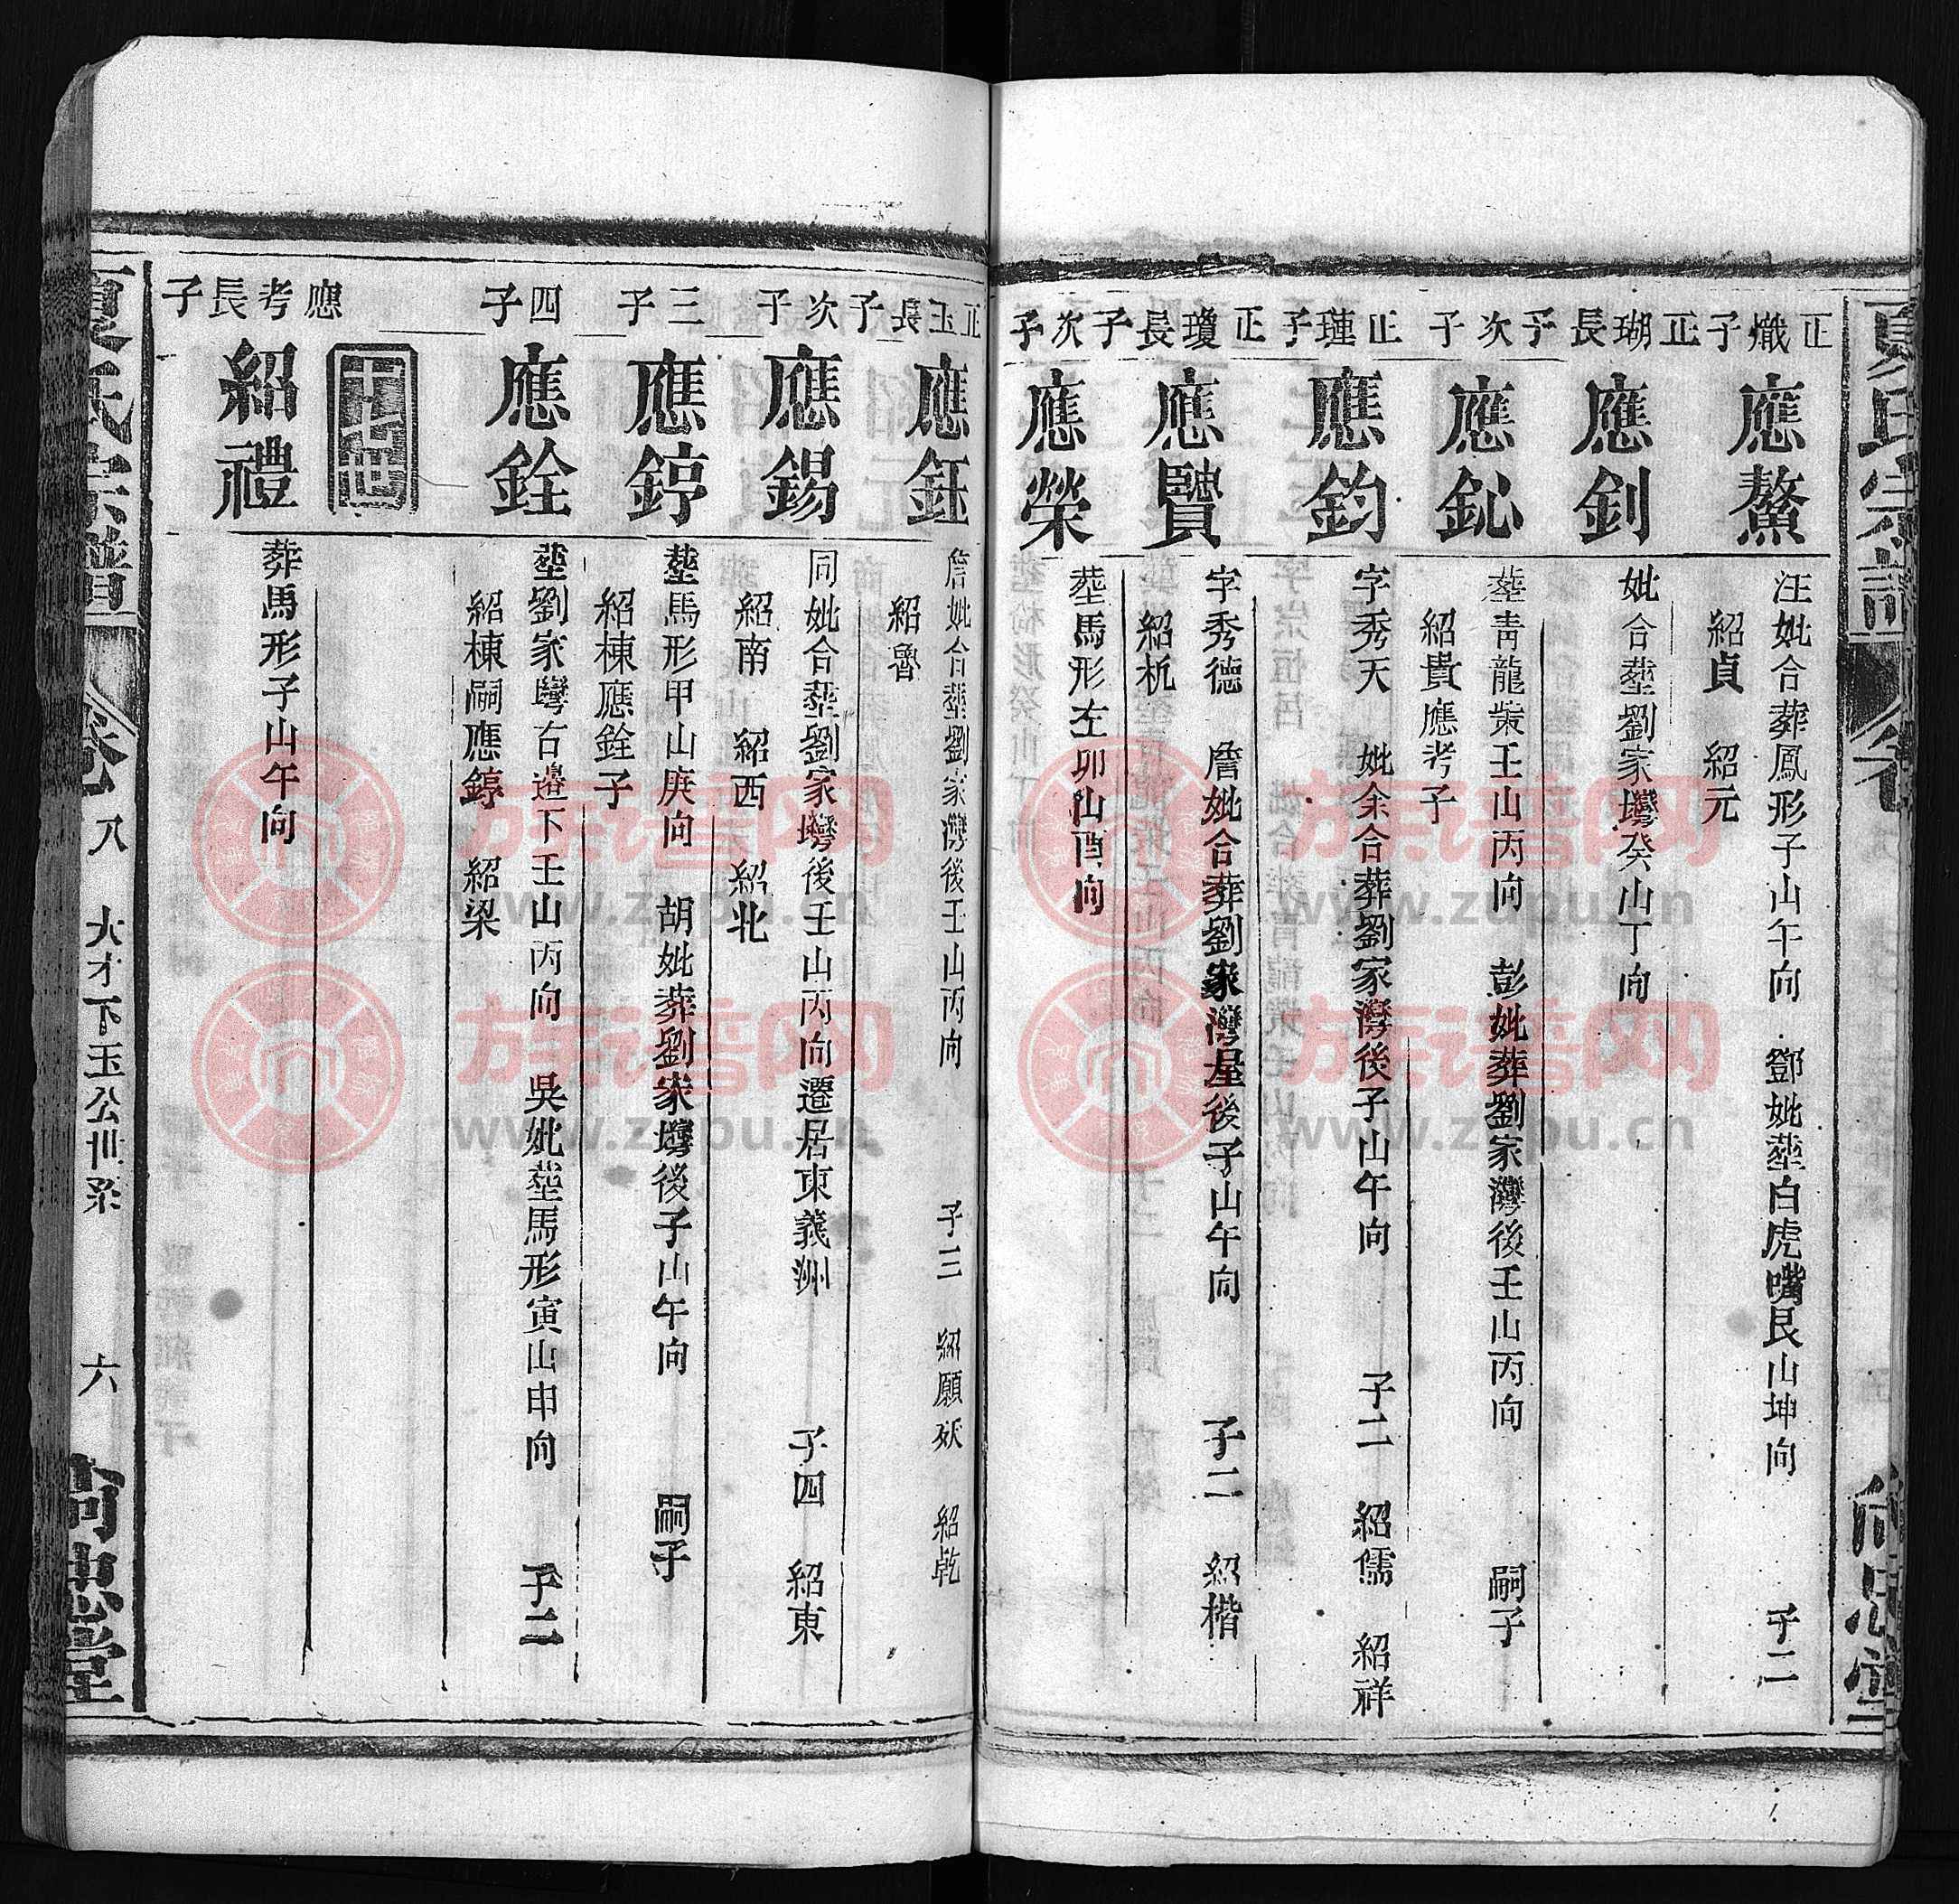 夏氏宗譜
卷
尚忠堂
正熾子
應鰲
汪妣合葬鳳形子山午向 鄧妣塟白虎嘴艮山坤向 子二
紹貞 紹元
正瑚長子
應釗
妣合塟劉家壪癸山丁向
次子
應鈊
塟青龍嘴壬山丙向 彭妣葬劉家灣後壬山丙向 嗣子
紹貴應考子
正璉子
應鈞
字秀天 妣余合葬劉家灣後子山午向 子二 紹儒 紹祥
正瓊長子
應賢
字秀德 詹妣合葬劉家灣屋後子山午向 子二 紹楷
紹析
次子
應榮
塟馬形左卯山酉向
正玉長子
應鈺
詹妣合塟劉家灣後壬山丙向 子三 紹願 紹乾
紹魯
次子
應錫
同妣合塟劉家壪後壬山丙向遷居東義洲 子四 紹東
紹南 紹西 紹北
三子
應錞
塟馬形甲山庚向 胡妣葬劉家壪後子山午向 嗣子
紹棟應銓子
四子
應銓
塟劉家壪右邉下壬山丙向 吳妣塟馬形寅山申向 子二
紹棟嗣應錞 紹梁
應考長子
紹禮
葬馬形子山午向
夏氏宗譜
卷八
大才下玉公世系
六
尚忠堂
族谱网
www.zupu.cn
族谱网
www.zupu.cn
族谱网
www.zupu.cn
族谱网
www.zupu.cn